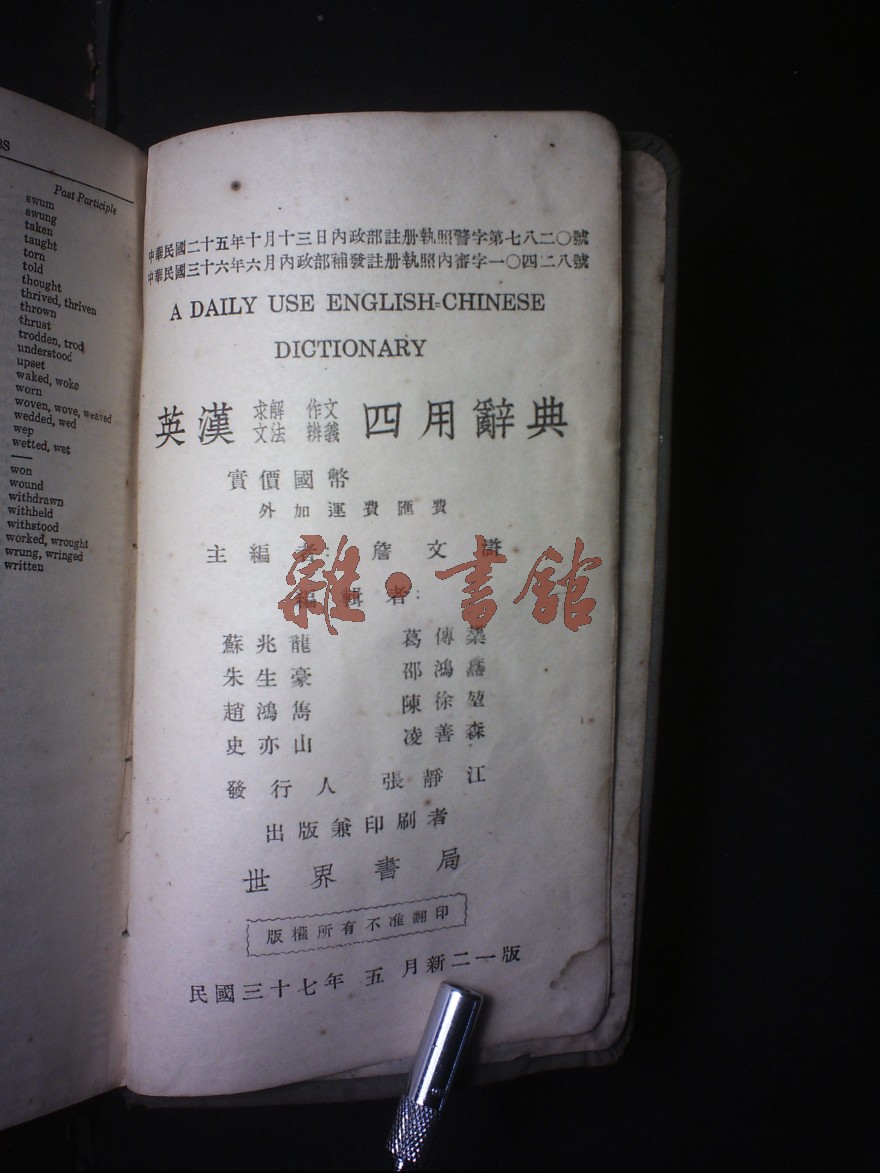 Past Participle
swum
swung
taken
taught
torn
told
thought
thrived, thriven
thrown
thrust
trodden, trod
understood
upset
waked, woke
worn
woven, wove, weaved
wedded, wed
wep
wetted, wet
won
wound
withdrawn
withheld
withstood
worked, wrought
wrung, wringed
written
中華民國二十五年十月十三日內政部註册執照警字第七八二〇號
中華民國三十六年六月內政部補發註册執照內審字一〇四二八號
A DAILY USE ENGLISH-CHINESE
DICTIONARY
英漢 求解 作文 文法 辨義 四用辭典
實價國幣
外加運費匯費
主編者: 詹文滸
編輯者:
雜·書館
蘇兆龍 葛傳槼
朱生豪 邵鴻馫
趙鴻雋 陳徐堃
史亦山 凌善森
發行人 張靜江
出版兼印刷者
世界書局
版權所有不准翻印
民國三十七年 五 月新二一版